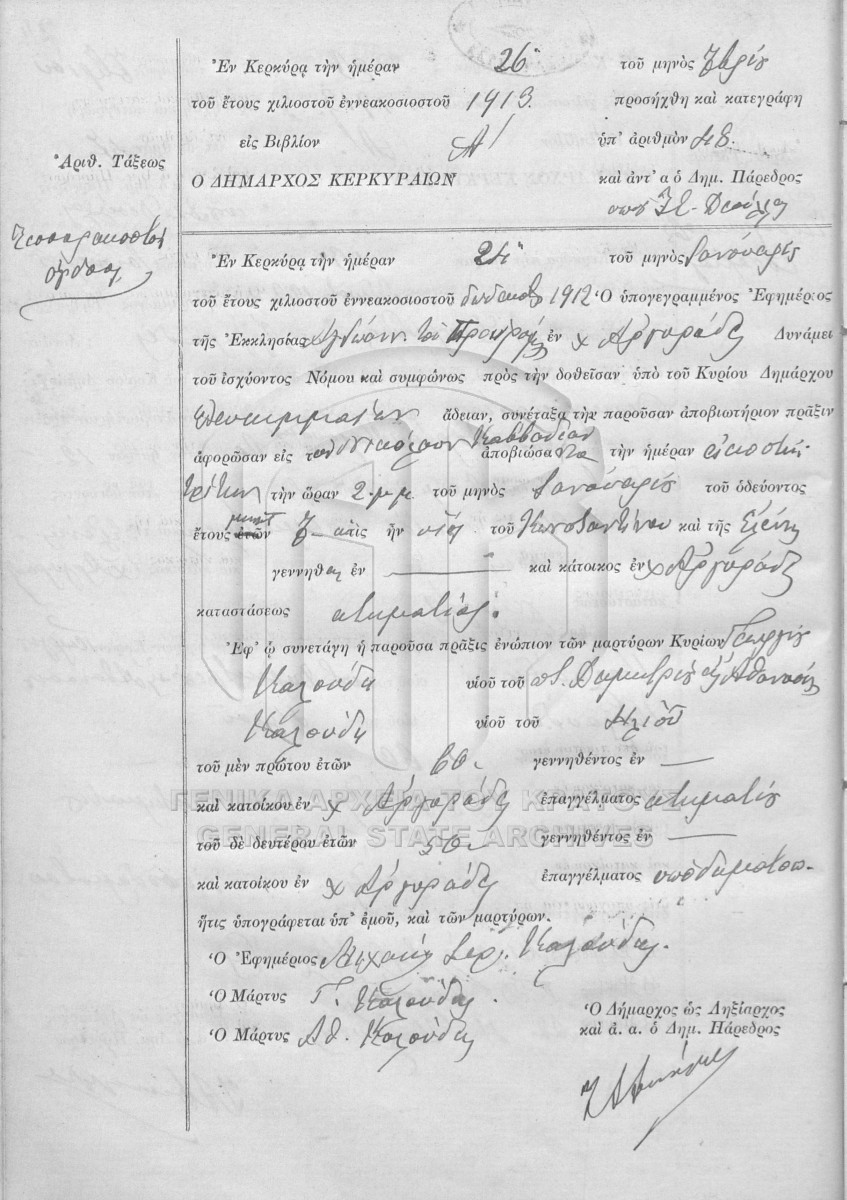 Ἐν Κερκύρᾳ τὴν ἡμέραν 26η τοῦ μηνὸς 
τοῦ ἔτους χιλιοστοῦ ἐννεακοσιοστοῦ 1913 προσήχθη καὶ κατεγράφη
εἰς Βιβλίον Α΄ ὑπ' ἀριθμὸν 48.
Ἀριθ. Τάξεως
Ο ΔΗΜΑΡΧΟΣ ΚΕΡΚΥΡΑΙΩΝ καὶ ἀντ' α ὁ Δημ. Πάρεδρος
Τεσσαρακοστὸν
ὄγδοον
Ἐν Κερκύρᾳ τὴν ἡμέραν 24η τοῦ μηνὸς Ἰανουαρίου
τοῦ ἔτους χιλιοστοῦ ἐννεακοσιοστοῦ δωδεκάτου 1912 Ὁ ὑπογεγραμμένος Ἐφημέριος
τῆς Ἐκκλησίας Ἁγ Ἰωάνν. τοῦ Προδρόμου ἐν χ Ἀργυράδες Δυνάμει
τοῦ ἰσχύοντος Νόμου καὶ συμφώνως πρὸς τὴν δοθεῖσαν ὑπὸ τοῦ Κυρίου Δημάρχου
Λευκιμμαίων ἄδειαν, συνέταξα τὴν παροῦσαν ἀποβιωτήριον πρᾶξιν
ἀφορῶσαν εἰς τὸν Νικόλαον Καββαδίαν ἀποβιώσαντα τὴν ἡμέραν εἰκοστὴν
τρίτην τὴν ὥραν 2 μ.μ. τοῦ μηνὸς Ἰανουαρίου τοῦ ὁδεύοντος
ἔτους ἐτῶν μηνῶν ἥτις ἦν υἱὸς τοῦ Κωνσταντίνου καὶ τῆς Ἑλένης
γεννηθεὶς ἐν — καὶ κάτοικος ἐν χ Ἀργυράδες
καταστάσεως κτηματίας.
Ἐφ' ᾧ συνετάγη ἡ παροῦσα πρᾶξις ἐνώπιον τῶν μαρτύρων Κυρίων Γεωργίου
Καλούδη υἱοῦ τοῦ Δημητρίου καὶ Ἀθανασίου
Καλούδη υἱοῦ τοῦ Ἠλιοῦ
τοῦ μὲν πρώτου ἐτῶν 60. γεννηθέντος ἐν —
ΓΕΝΙΚΑ ΑΡΧΕΙΑ ΤΟΥ ΚΡΑΤΟΥΣ
καὶ κατοίκου ἐν χ Ἀργυράδες ἐπαγγέλματος κτηματίου
GENERAL STATE ARCHIVES
τοῦ δὲ δευτέρου ἐτῶν 50 γεννηθέντος ἐν —
καὶ κατοίκου ἐν χ Ἀργυράδες ἐπαγγέλματος ὑποδηματοπ.
ἥτις ὑπογράφεται ὑπ' ἐμοῦ, καὶ τῶν μαρτύρων.
Ὁ Ἐφημέριος Μιχαὴλ Ἱερ. Καλούδης.
Ὁ Μάρτυς Γ. Καλούδης.
Ὁ Μάρτυς Αθ. Καλούδης
Ὁ Δήμαρχος ὡς Ληξίαρχος
καὶ ἀ. α. ὁ Δημ. Πάρεδρος